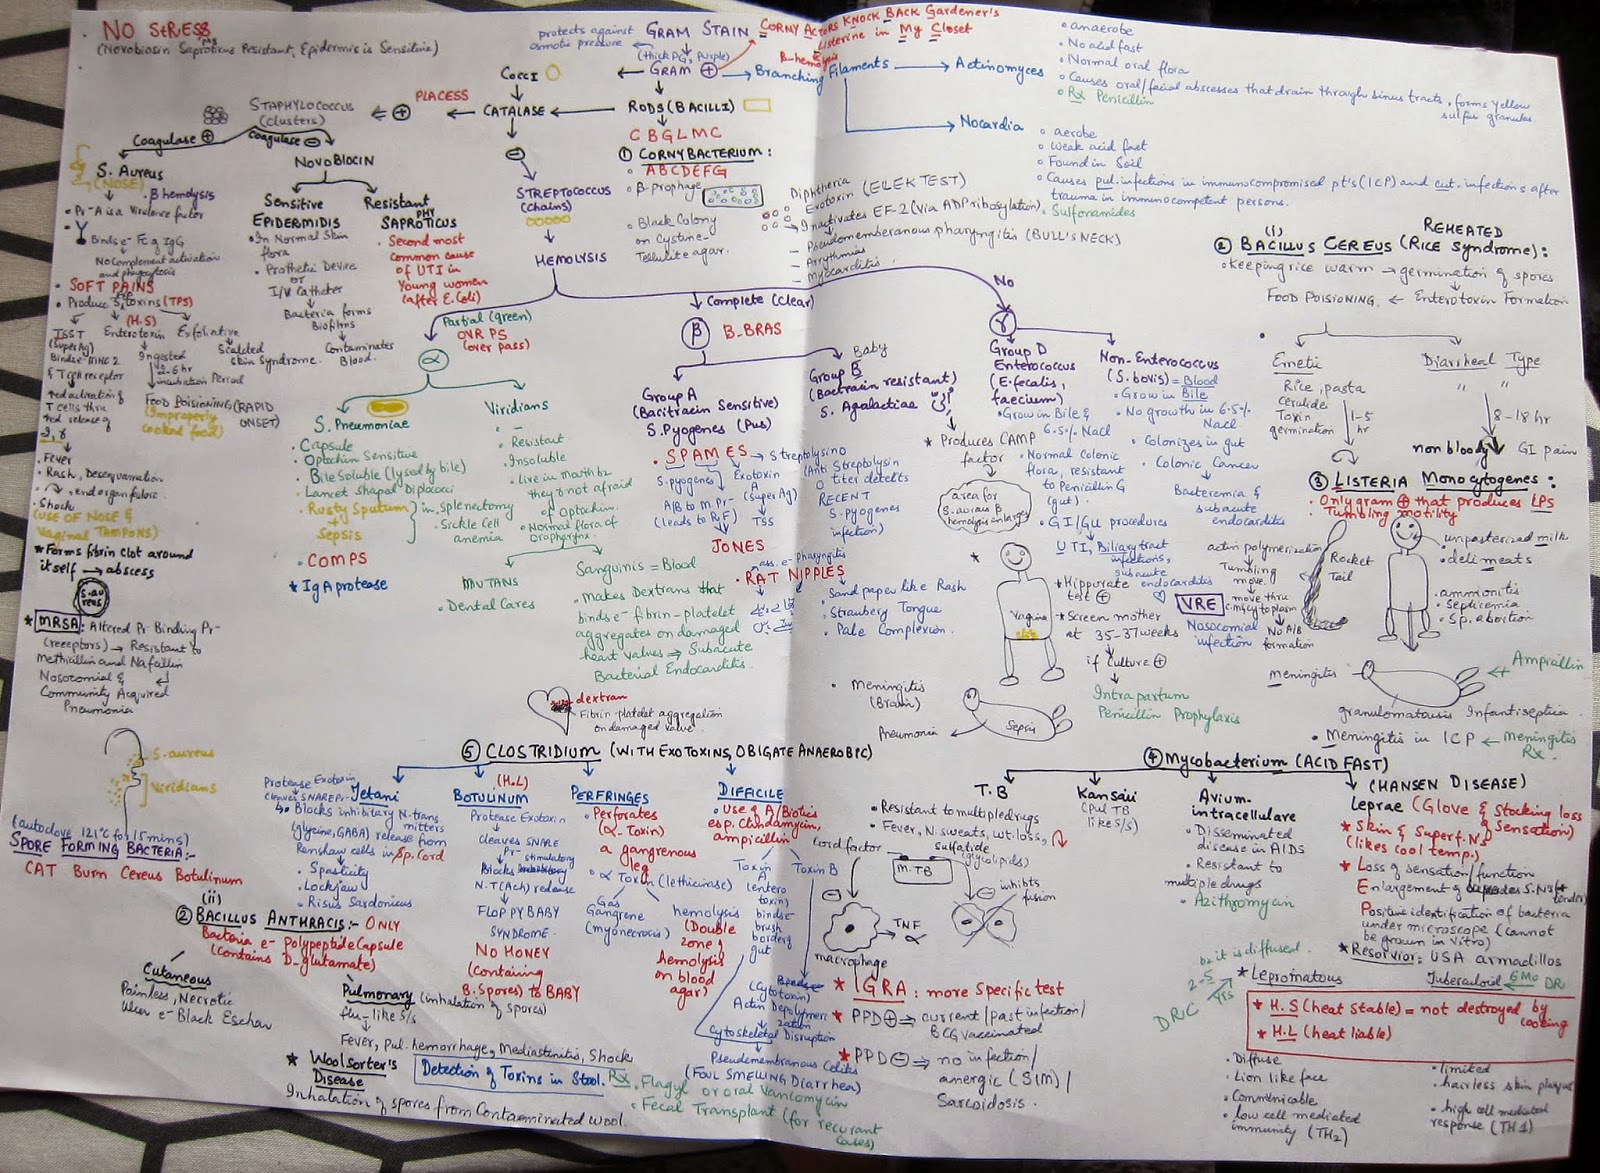 NO StRESS
(Novobiosin Saprophyticus Resistant, Epidermis is Sensitive)
protects against
osmotic pressure
GRAM STAIN
(thick PG, purple)
GRAM +
CORNY ACTORS KNOCK BACK Gardener's
Listerine in My Closet
β-hemolysis
Branching Filaments
Actinomyces
• anaerobe
• No acid fast
• Normal oral flora
• Causes oral/facial abscesses that drain through sinus tracts, forms yellow
sulfur granules
• Rx Penicillin
Nocardia
• aerobe
• weak acid fast
• Found in Soil
• Causes pul. infections in immunocompromised pt's (ICP) and cut. infections after
trauma in immunocompetent persons.
• Sulfonamides
COCCI
RODS (BACILLI)
CATALASE
PLACESS
+
STAPHYLOCOCCUS
(clusters)
Coagulase +
Coagulase -
S. Aureus
(NOSE)
β hemolysis
• Pr-A is a Virulence factor
Binds e- Fc of IgG
No complement activation
and phagocytosis
• SOFT PAINS
• Produce 3 toxins (TPS)
TSST
(super Ag)
Binds e- MHC 2
& T cell receptor
(H.S)
Enterotoxin
Ingested
2-6 hr
incubation Period
FOOD POISIONING (RAPID
ONSET)
(Improperly
cooked food)
Exfoliative
Scalded
skin Syndrome.
Fever
• Rash, Desequamation
, end organ failure.
• Shock
(USE OF NOSE &
vaginal TAMPONS)
* Forms fibrin clot around
itself → abscess
S. aureus
* MRSA: Altered Pr Binding Pr-
(receptors) → Resistant to
Methicillin and Nafallin
Nosocomial &
Community Acquired
Pneumonia
NOVOBIOCIN
Sensitive
EPIDERMIDIS
• In Normal Skin
flora
• Prothetic Device
or
I/V Catheter
Bacteria forms
Biofilms
Contaminates
Blood.
Resistant
SAPROPHYTICUS
• Second most
common cause
of UTI in
Young women
(after E.Coli)
-
STREPTOCOCCUS
(chains)
HEMOLYSIS
Partial (green)
OVR PS
(over pass)
α
S. Pneumoniae
• Capsule
• Optochin Sensitive
• Bile Soluble (lysed by bile)
• Lancet Shapal Diplococci
• Rusty Sputum
+
Sepsis
in, Splenectomy
• Sickle Cell
anemia
• COMPS
* IgA protease
Viridians
• -
• Resistant
• Insoluble
• Live in mouth bz
they r not afraid
of Optochin.
• Normal flora of
Oropharynx.
MUTANS
• Dental Cares
Sanguinis = Blood
• makes Dextrans that
binds e- fibrin-platelet
aggregates on damaged
heart valves → Subacute
Bacterial Endocarditis.
dextran
Fibrin-platelet aggregation
on damaged valve
Complete (clear)
β
B-BRAS
Group A
(Bacitracin Sensitive)
S. Pyogenes (Pus)
• SPAMES
Streptolysin O
(Anti Streptolysin
O titer detects
RECENT
S-pyogenes
infection)
S. pyogenes
A/B to M. Pr-
(leads to R.F)
Exotoxin
(Super Ag)
TSS
JONES
• RAT NIPPLES
• Sand paper like Rash
• Strawbery Tongue
• Pale Complexion.
Baby
Group B
(Bactracin resistant)
S. Agalactiae
* Produces CAMP
factor
area for
S. aurais β
hemolysis enlarges
Vagina
* Hippurate
test +
* Screen mother
at 35-37 weeks
if Culture +
Intra partum
Penicillin Prophylaxis
• Meningitis
(Brain)
Pneumonia
Sepsis
No
γ
Group D
Enterococcus
(E. fecalis,
faecium)
• Grow in Bile &
6.5% Nacl
• Normal colonic
flora, resistant
to Penicillin G
(gut).
• GI/GU procedures
UTI, Biliary tract
infections,
subacute
endocarditis
VRE
Nosocomial
infection
Non-Enterococcus
(S. bovis) = Blood
• Grow in Bile
• No growth in 6.5%
Nacl
• Colonizes in gut
• Colonic Cancer
Bacteremia &
subacute
endocarditis
CBGLMC
① CORNYBACTERIUM:
• ABCDEFG
• β-prophage
• Black Colony
on Cystine-
Tellulite agar.
Diphtheria (ELEK TEST)
Exotoxin
Inactivates EF-2 (via ADP ribosylation)
- Pseudomemberanous pharyngitis (BULL'S NECK)
- Arrythmias
- Myocarditis
(i) REHEATED
② BACILLUS CEREUS (RICE Syndrome):
• keeping rice warm → germination of spores
FOOD POISIONING. ← Enterotoxin Formation
Emetic
Rice, pasta
cerulide
Toxin
germination
1-5
hr
Diarrheal Type
8-18 hr
non bloody
GI pain
③ LISTERIA Monocytogenes:
• Only gram + that produces LPS
• Tumbling motility
actin polymerization
Tumbling
move.
Rocket
Tail
No A/B
formation
• unpasterized milk
• deli meats
• ammionitis
• Septicemia
• Sp. abortion
Meningitis
Ampicillin
granulomatousis Infantiseptica
• Meningitis in ICP ← Meningitis
Rx.
S. aureus
Viridians
(autoclove 121°C for 15 mins)
SPORE FORMING BACTERIA:-
CAT Burn Cereus Botulinum
(ii)
② BACILLUS ANTHRACIS:- ONLY
Bacteria e- polypeptide Capsule
(contains D-glutamate)
Cutaneous
Painless, Necrotic
Ulcer e- Black Eschar
Pulmonary (inhalation of spores)
flu-like S/s
Fever, pul. hemorrhage, Mediastinitis, Shock
* Woolsorter's
Disease
Inhalation of spores from Contaminated wool.
⑤ CLOSTRIDIUM (WITH EXOTOXINS, OBIGATE ANAEROBIC)
Tetani
Protease Exotoxin
cleaves SNARE Pr-
Blocks inhibitory N. trans
mitters
(glycine, GABA) release from
Renshaw cells in Sp. Cord
• Spasticity
• Lockjaw
• Risus Sardonicus
(H.L)
BOTULINUM
Protease Exotoxin
cleaves SNARE
Pr-
Blocks stimulatory
N-T (Ach) release
FLOPPY BABY
SYNDROME.
NO HONEY
(containing
B. Spores) to BABY
PERFRINGES
• Perforates
(α-Toxin)
a gangrenous
leg
• α Toxin (lethicinase)
Gas
Gangrene
(myonecrosis)
hemolysis
(Double
zone of
hemolysis
on blood
agar)
DIFFICILE
• Use of A/Biotics
esp. Clindamycin,
ampicillin
Toxin A
(entero
toxin)
binds e-
brush
border of
gut
Toxin B
(Cytotoxin)
Actin Depolymeri
zation
Cytoskeletal Disruption
Pseudemembranous Colitis
(FOUL SMELLING Diarrhea)
Detection of Toxins in Stool.
Rx • Flagyl or oral Vancomycin
• Fecal Transplant (for recurant
Cases)
④ Mycobacterium (ACID FAST)
T.B
• Resistant to multiple drugs
• Fever, N. sweats, wt. loss,
Cord factor
sulfatide
(glycolipids)
M.TB
TNF
α
macrophage
inhibts
fusion
* IGRA: more Specific test
* PPD + ⇒ current/past infection/
BCG vaccinated
* PPD - ⇒ no infection/
anergic (SIM)/
Sarcoidosis.
Kansaii
(Pul TB
like S/s)
Avium-
intracellulare
• Disseminated
disease in AIDS
• Resistant to
multiple drugs
• Azithromycin
(HANSEN DISEASE)
Leprae (Glove & Stocking loss
of Sensation)
* Skin & Superf. N's
(likes cool temp.)
* Loss of sensation/function
Enlargement of S. N's (+
tender)
Positive identification of bacteria
under microscope (cannot
be grown in vitro)
* Reservior: USA armadillos
bz it is diffused
2-5
yrs
DRC
* Lepromatous
Tuberculoid
6MO DR
* H.S (heat stable) = not destroyed by
cooking
* H.L (heat liable)
• Diffuse
• Lion like face
• Communicable
• low cell mediated
immunity (TH2)
• limited
• hairless skin plaques
• high cell mediated
response (TH1)